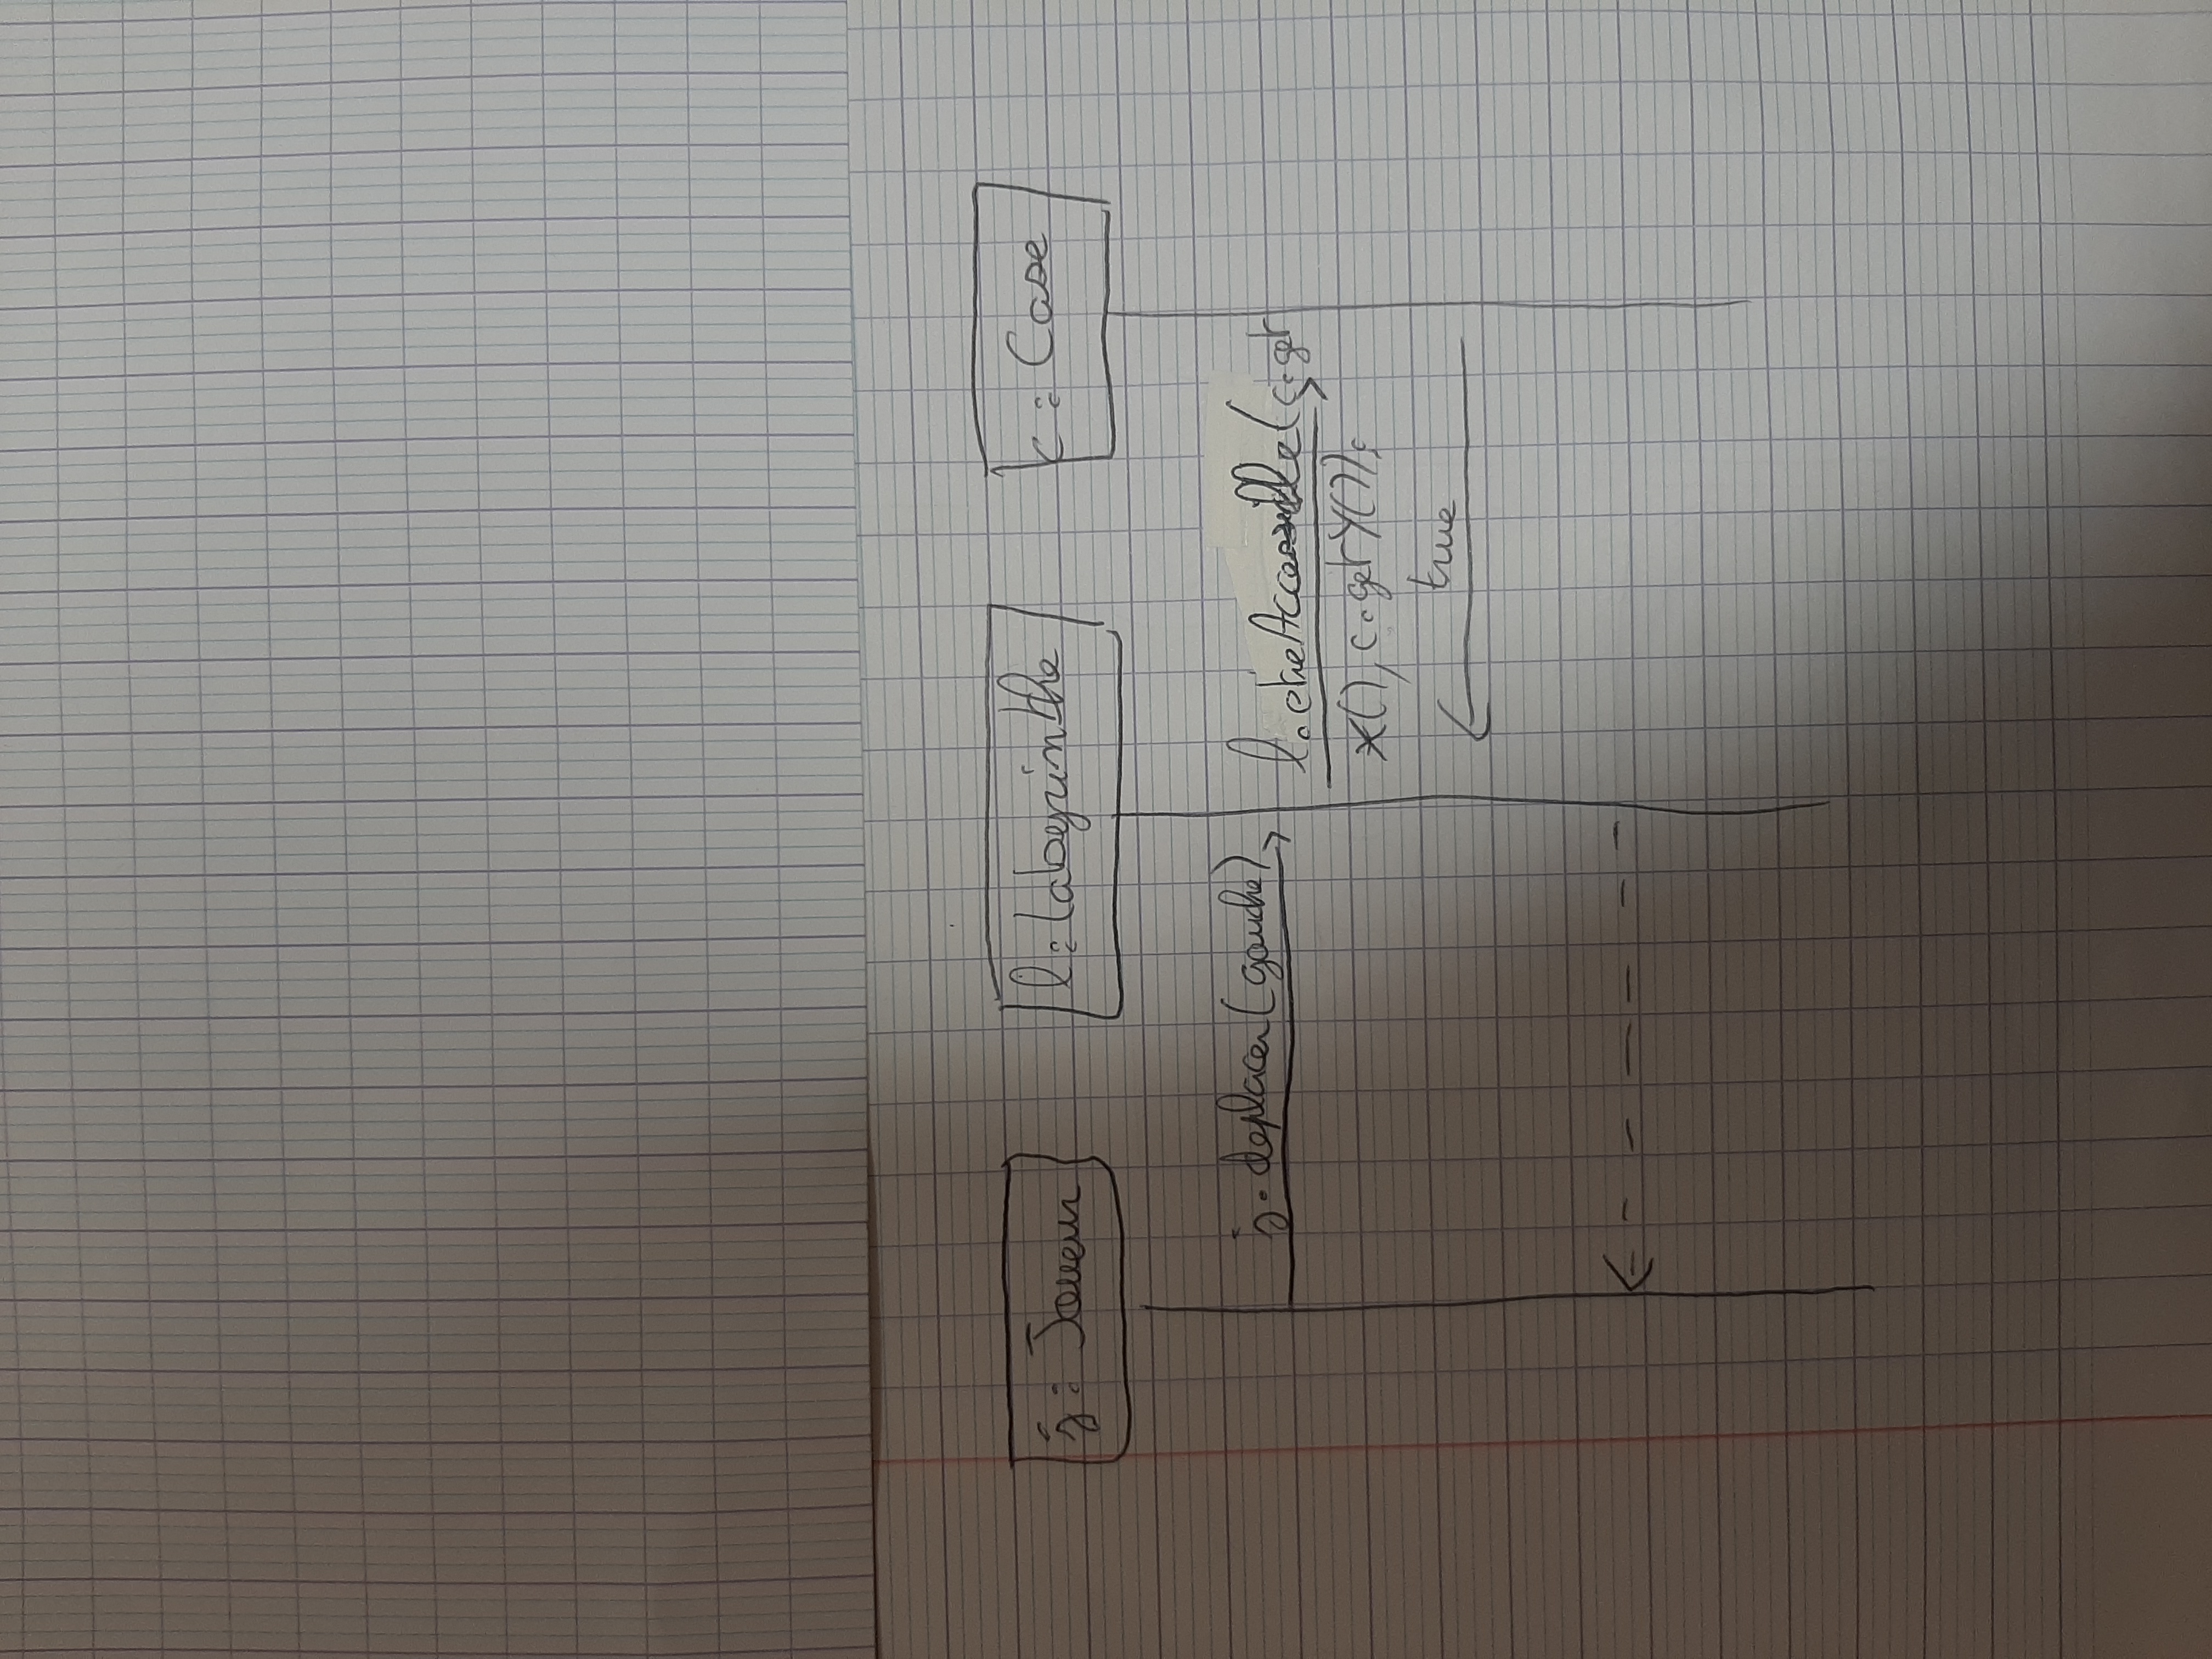 j : Joueur
l : labyrinthe
c : Case
j.deplacer(gauche)
l.etreAccessible(c.get
X(), c.getY());
true